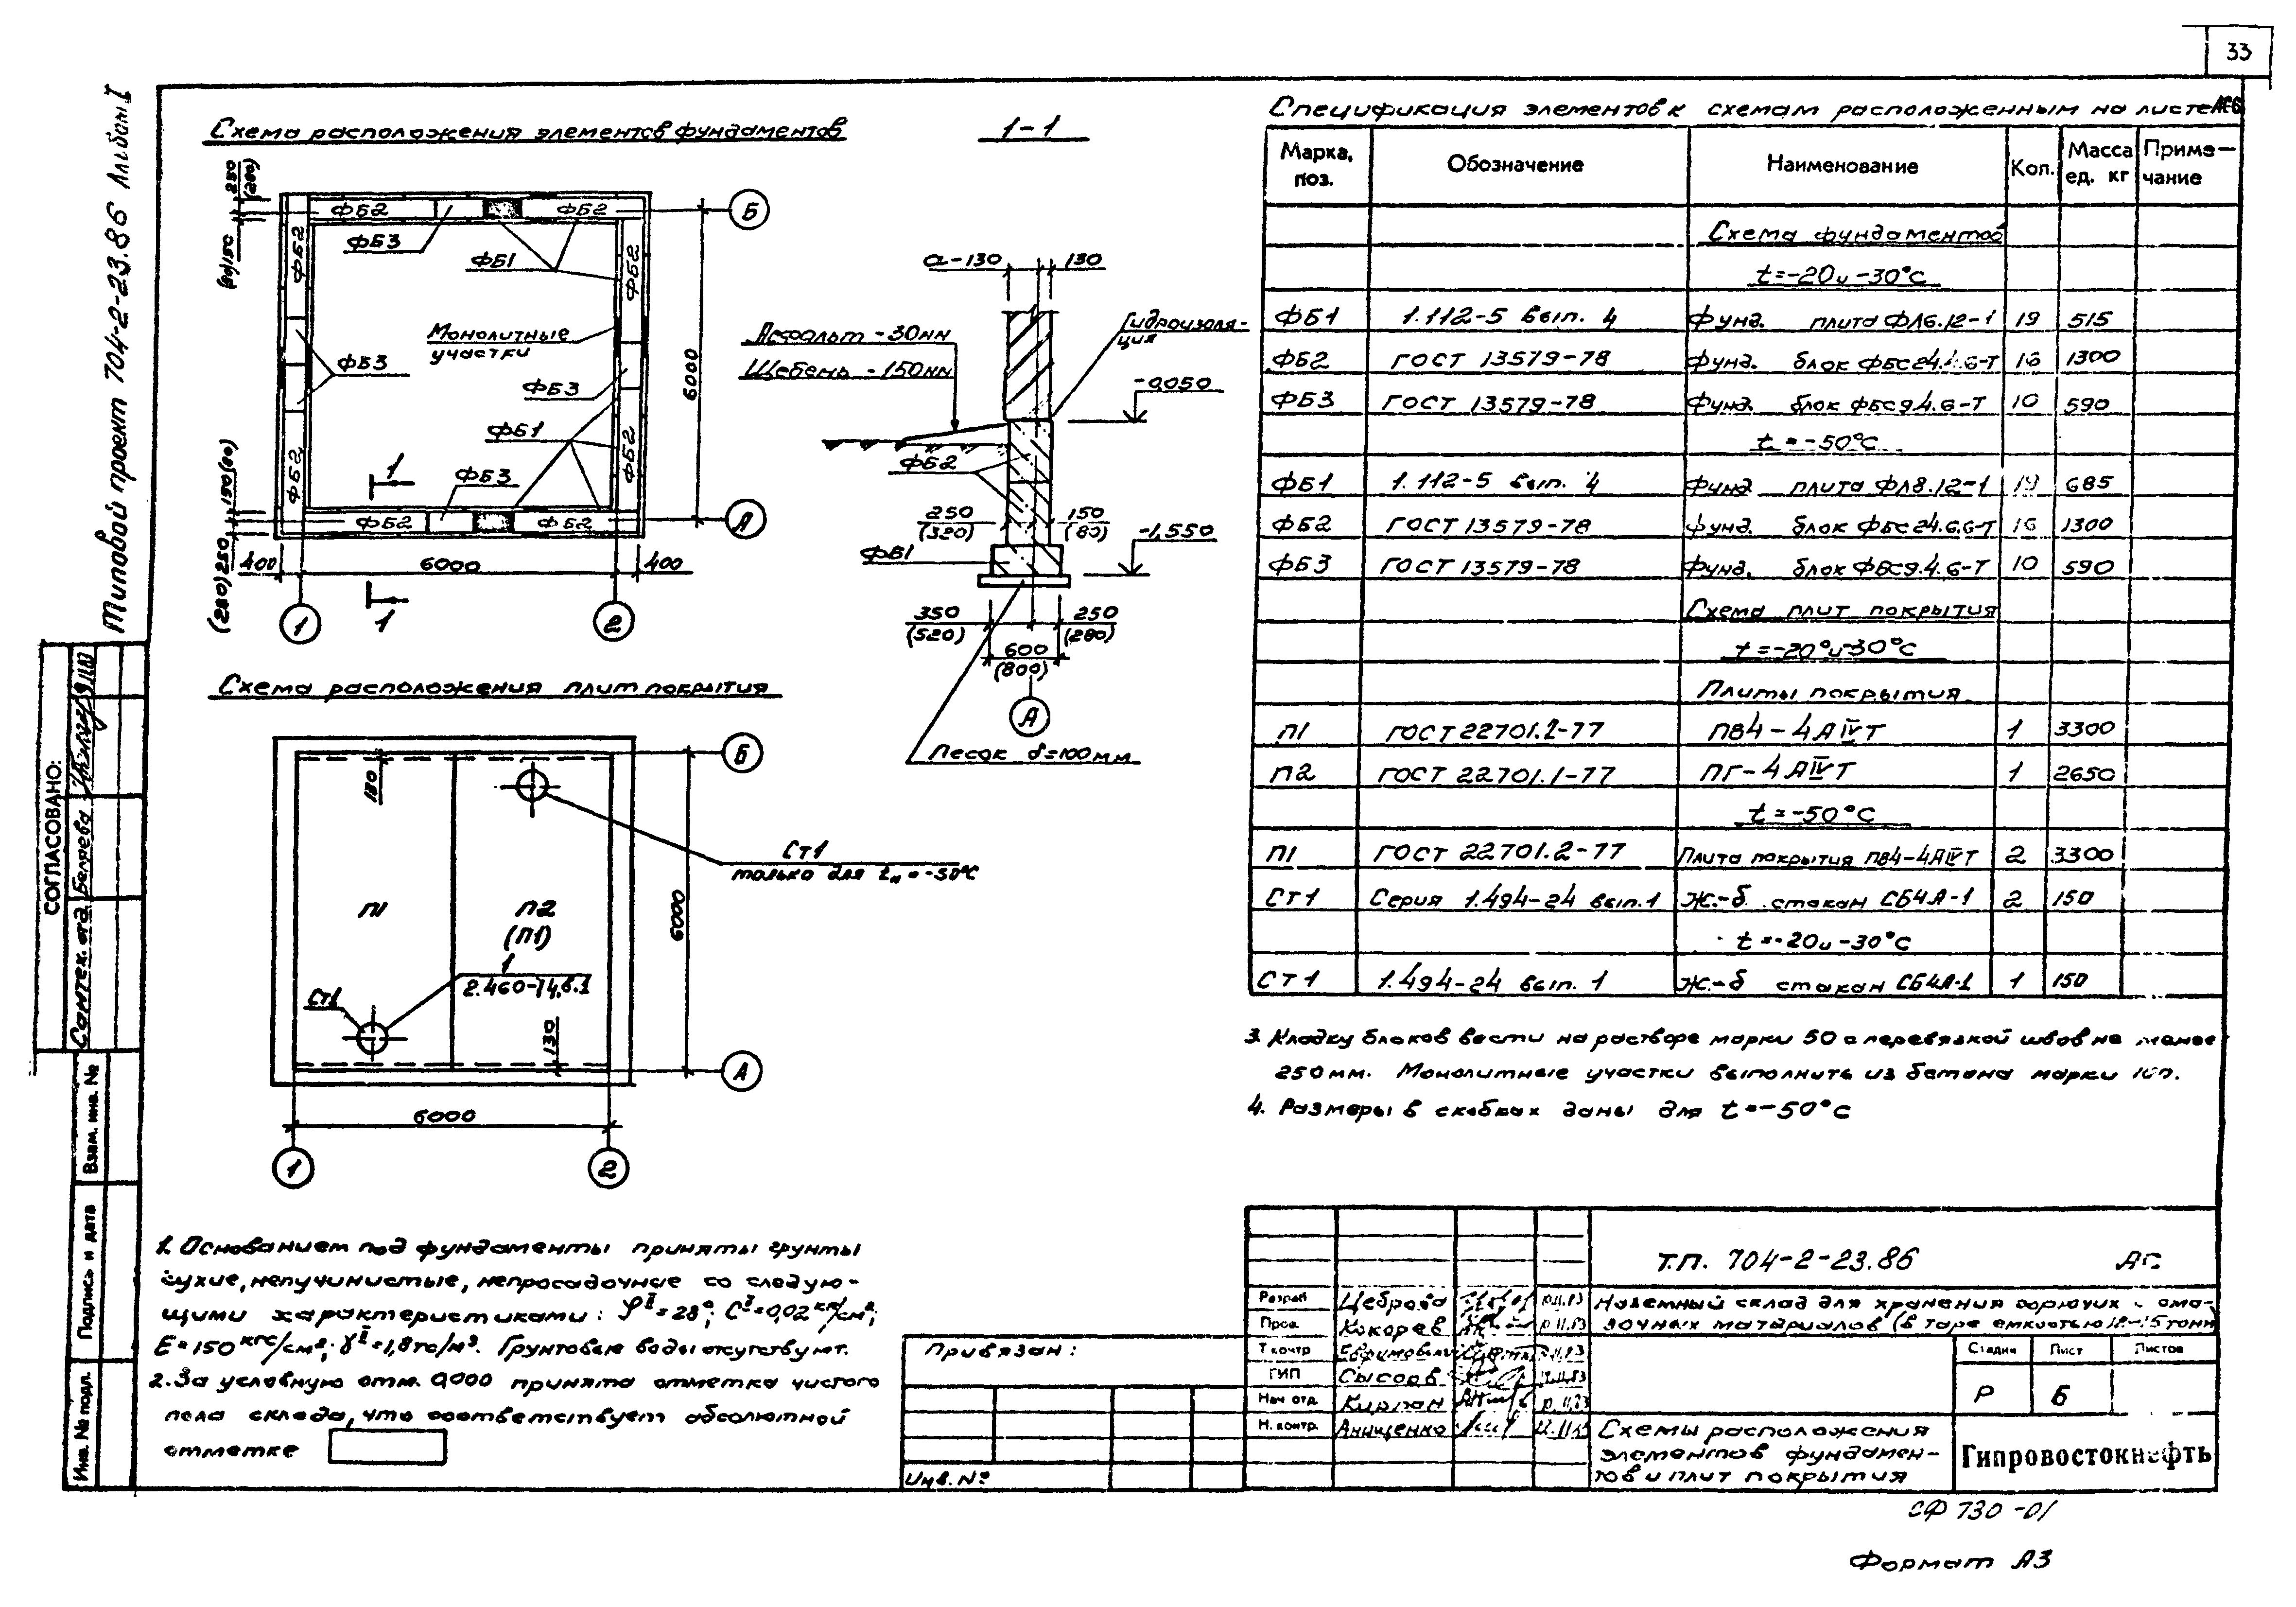 33
Типовой проект 704-2-23.86 Альбом I
Схема расположения элементов фундаментов
250
(280)
(80)150
ФБ2
ФБ2
ФБ3
ФБ1
ФБ2
ФБ2
Монолитные
участки
ФБ3
ФБ3
ФБ1
ФБ2
ФБ2
ФБ3
ФБ2
ФБ2
1
1
6000
150(80)
(280)250
400
6000
400
Б
А
1
2
1-1
а-130
130
Асфальт-30мм
Щебень-150мм
Гидроизоля-
ция
-0.050
ФБ2
250
(320)
150
(80)
-1,550
ФБ1
350
(520)
250
(280)
600
(800)
А
Песок δ=100мм
Схема расположения плит покрытия
130
Ст1
только для tн=-50°С
П1
П2
(П1)
1
2.460-14,в.1
Ст1
130
6000
6000
Б
А
1
2
Спецификация элементов к схемам расположенным на листе АС6
Марка, поз.
Обозначение
Наименование
Кол.
Масса ед. кг
Приме-
чание
Схема фундаментов
t=-20и-30°С
ФБ1 1.112-5 вып. 4 Фунд. плита ФЛ6.12-1 19 515
ФБ2 ГОСТ 13579-78 Фунд. блок ФБС24.4.6-Т 16 1300
ФБ3 ГОСТ 13579-78 Фунд. блок ФБС9.4.6-Т 10 590
t=-50°С
ФБ1 1.112-5 вып. 4 Фунд плита ФЛ8.12-1 19 685
ФБ2 ГОСТ 13579-78 Фунд. блок ФБС24.6.6-Т 16 1300
ФБ3 ГОСТ 13579-78 Фунд. блок ФБС9.4.6-Т 10 590
Схема плит покрытия
t=-20°и-30°С
Плиты покрытия
П1 ГОСТ 22701.2-77 ПВ4-4АIVТ 1 3300
П2 ГОСТ 22701.1-77 ПГ-4АIVТ 1 2650
t=-50°С
П1 ГОСТ 22701.2-77 Плита покрытия ПВ4-4АIVТ 2 3300
Ст1 Серия 1.494-24 вып.1 Ж.-б. стакан СБ4А-1 2 150
t=-20и-30°С
Ст1 1.494-24 вып. 1 Ж.-б стакан СБ4А-1 1 150
3. Кладку блоков вести на растворе марки 50 с перевязкой швов не менее
250мм. Монолитные участки выполнить из бетона марки 100.
4. Размеры в скобках даны для t=-50°С
1. Основанием под фундаменты приняты грунты
сухие, непучинистые, непросадочные со следую-
щими характеристиками: φII=28°; CII=0,02 кгс/см²;
E=150 кгс/см²; γII=1,8тс/м³. Грунтовые воды отсутствуют.
2. За условную отм. 0,000 принята отметка чистого
пола склада, что соответствует абсолютной
отметке
СОГЛАСОВАНО:
Сантех. отд. Беляева
Взам. инв. №
Подпись и дата
Инв. № подл.
Привязан:
Инв. №
Т.П. 704-2-23.86 АС
Разраб Цеброва
Пров. Кокорев
Т.контр
ГИП Сысоев
Нач отд. Кирпан
Н. контр. Анищенко
Наземный склад для хранения горючих и сма-
зочных материалов (в таре емкостью 12-15тонн
Стадия
Лист
Листов
Р
6
Схемы расположения
элементов фундамен-
тов и плит покрытия
Гипровостокнефть
СФ 730-01
Формат А3